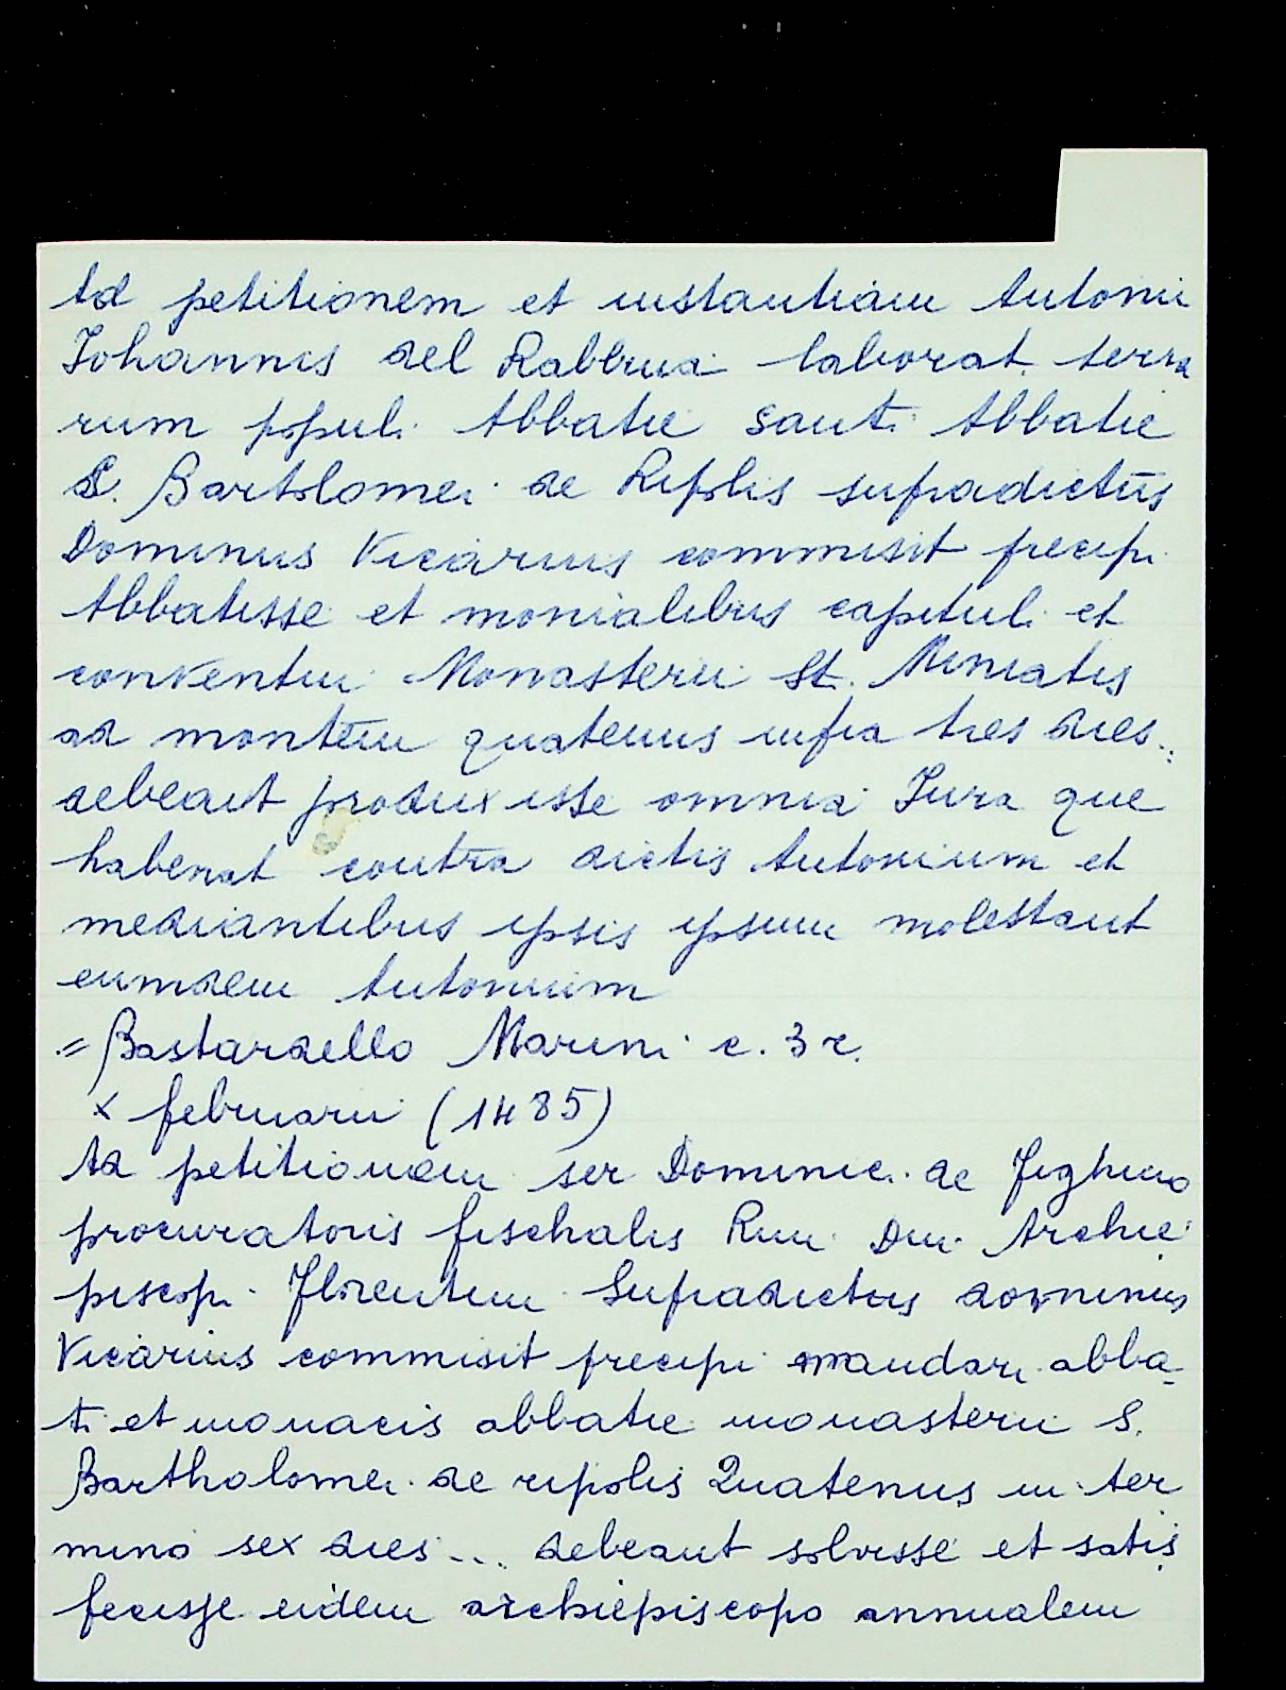 Ad petitionem et instantiam Antonii
Johannis del Rabbuia laborat. terra
rum populi Abbatie Santi Abbatie
S. Bartolomei de Ripolis supradictus
Dominus Vicarius commisit precipi
Abbatisse et monialibus capituli et
conventui Monasterii St. Miniatis
ad montem quatenus infra tres dies..
debeant produxisse omnia Jura que
haberat contra dictis Antonium et
mediantibus ipsis ipsum molestant
eumdem Antonium
= Bastardello Marini c. 3 r.
X februarii (1485)
Ad petitionem ser Dominici de Fighino
procuratoris fischalis Rmi Dni Archie
piscopi Florentini Supradictus dominus
Vicarius commisit precipi mandari abba
ti et monacis abbatie monasterii S.
Bartholomei de ripolis Quatenus in ter
mino sex dies ... debeant solvisse et satis
fecisse eidem archiepiscopo annualem